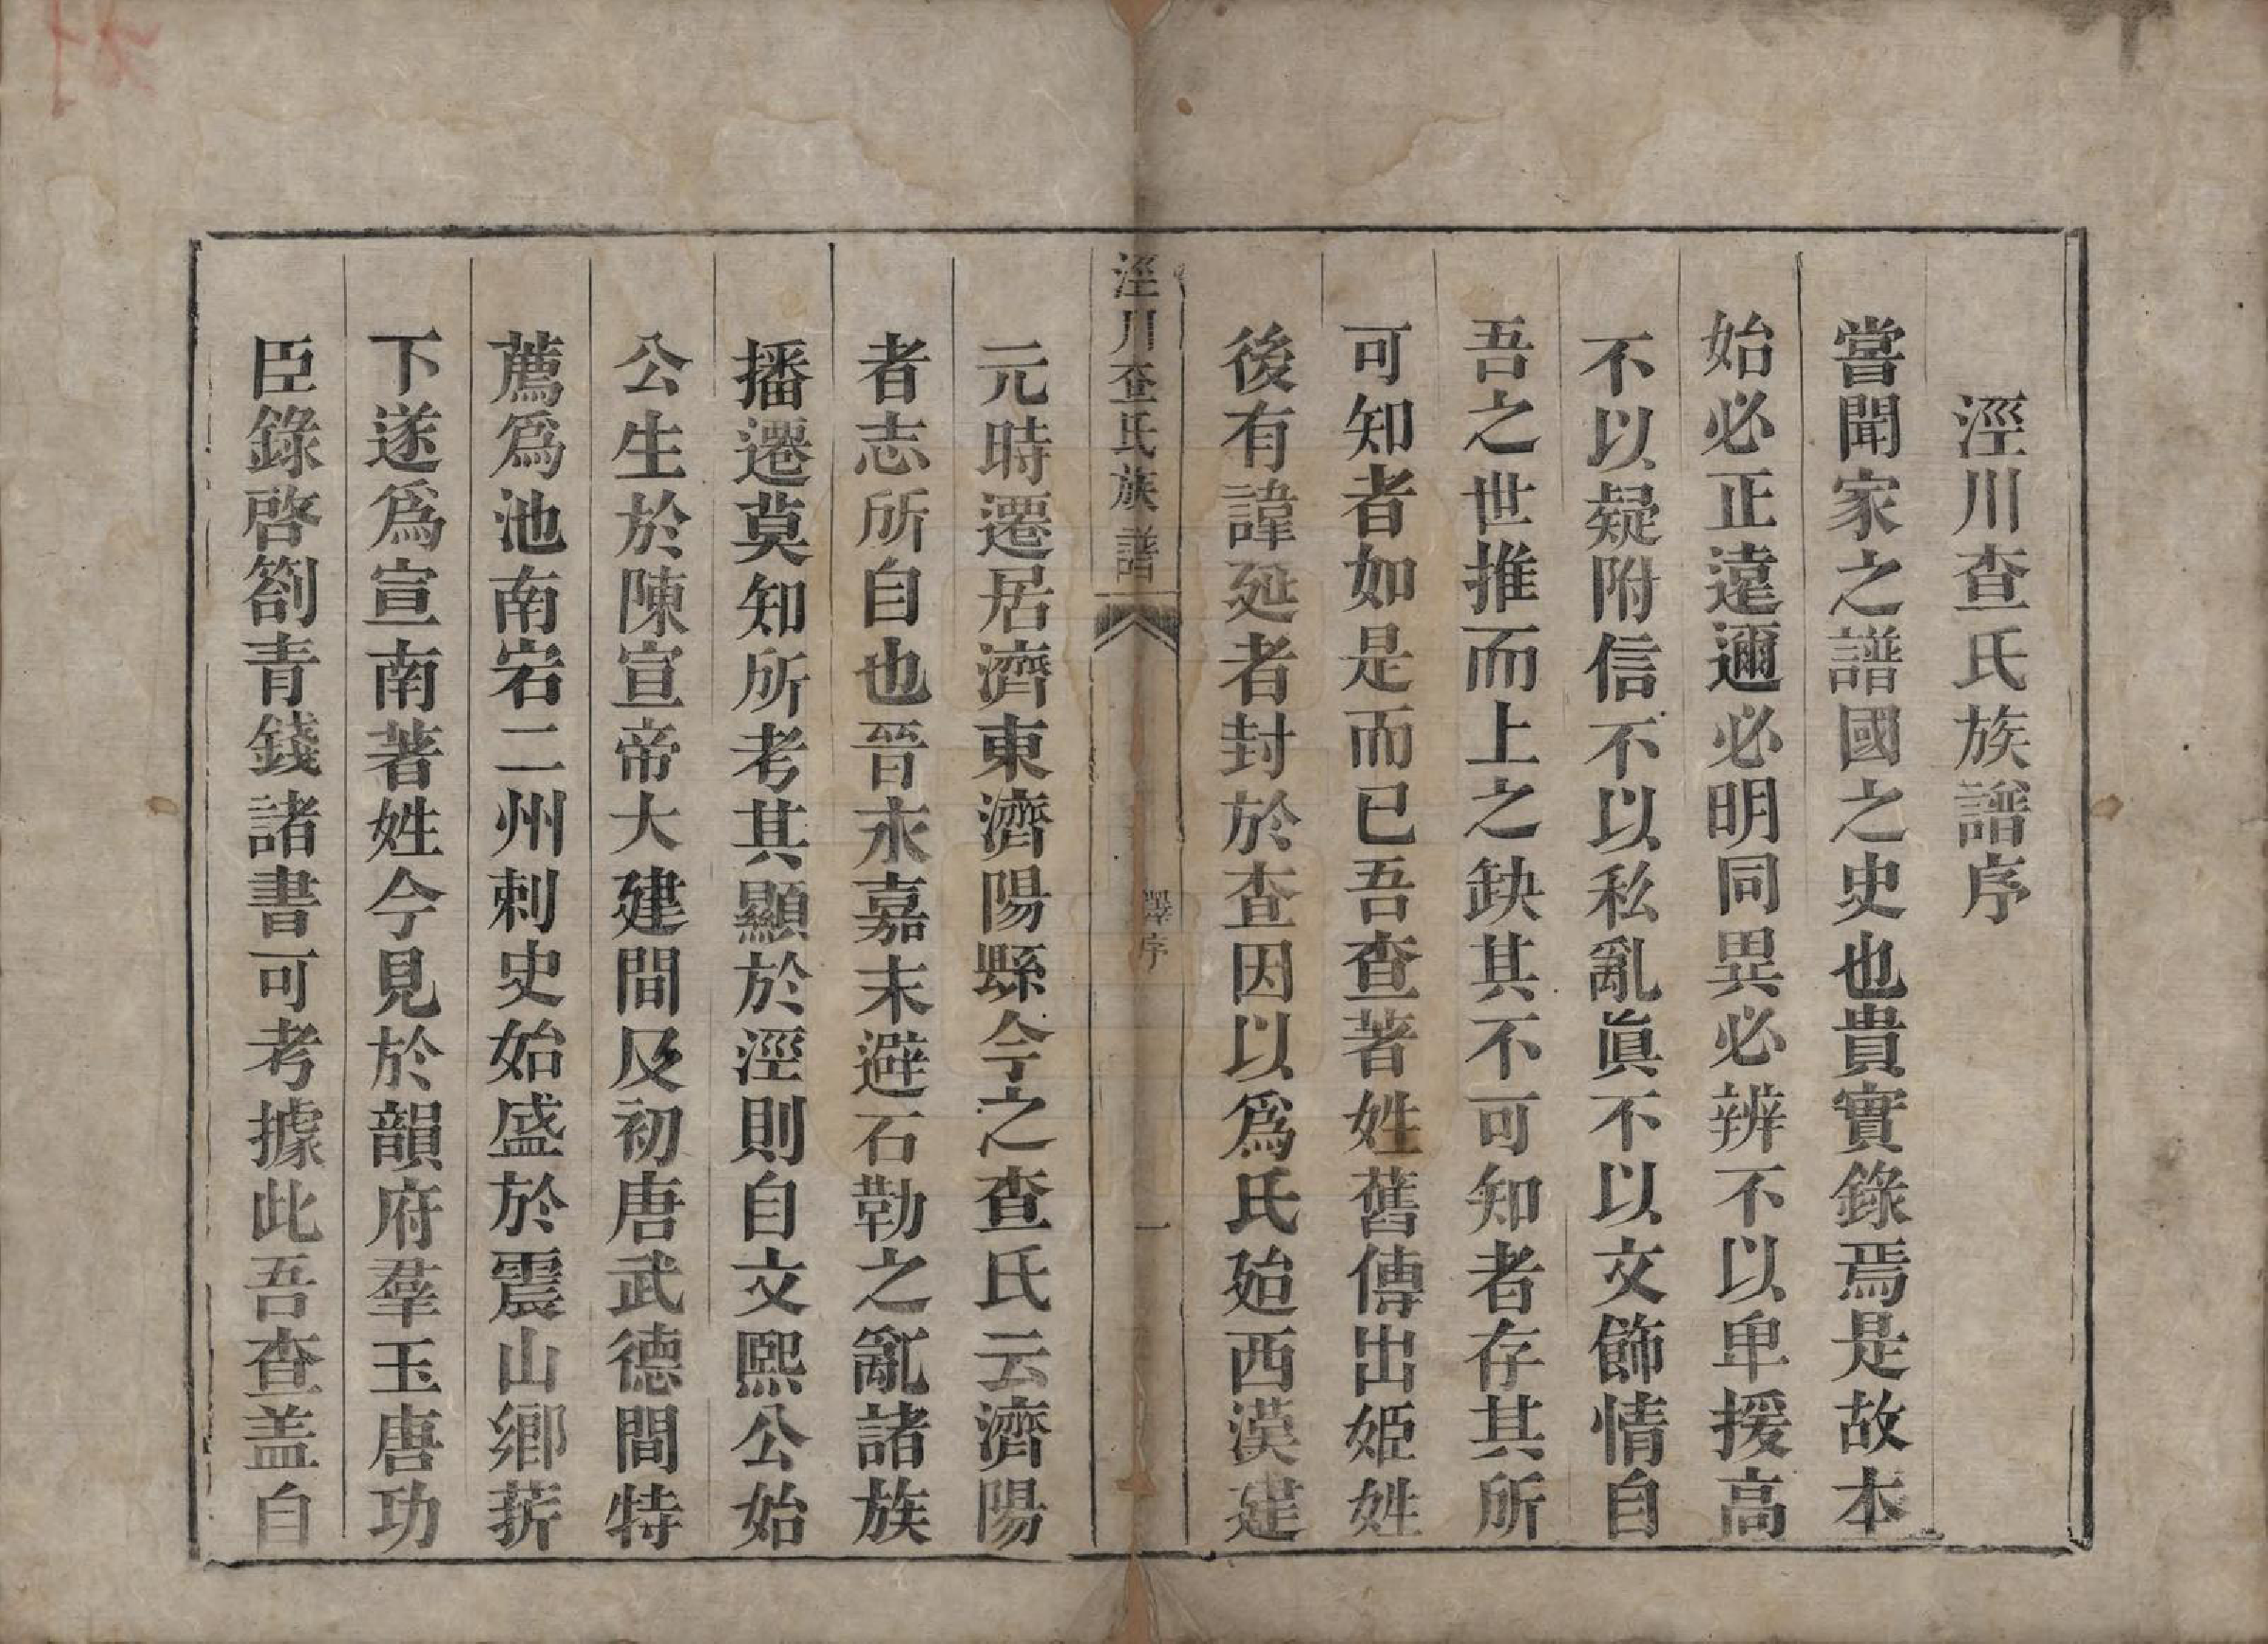 涇川查氏族譜序
嘗聞家之譜國之史也貴實錄焉是故本
始必正遠邇必明同異必辨不以卑援高
不以疑附信不以私亂眞不以文飾情自
吾之世推而上之缺其不可知者存其所
可知者如是而已吾查著姓舊傳出姬姓
後有諱延者封於查因以爲氏迨西漢建
涇川查氏族譜
序
一
元時遷居濟東濟陽縣今之查氏云濟陽
者志所自也晉永嘉末避石勒之亂諸族
播遷莫知所考其顯於涇則自文熙公始
公生於陳宣帝大建間及初唐武德間特
薦爲池南岩二州刺史始盛於震山鄉菥
下遂爲宣南著姓今見於韻府羣玉唐功
臣錄啓劄青錢諸書可考據此吾查盖自